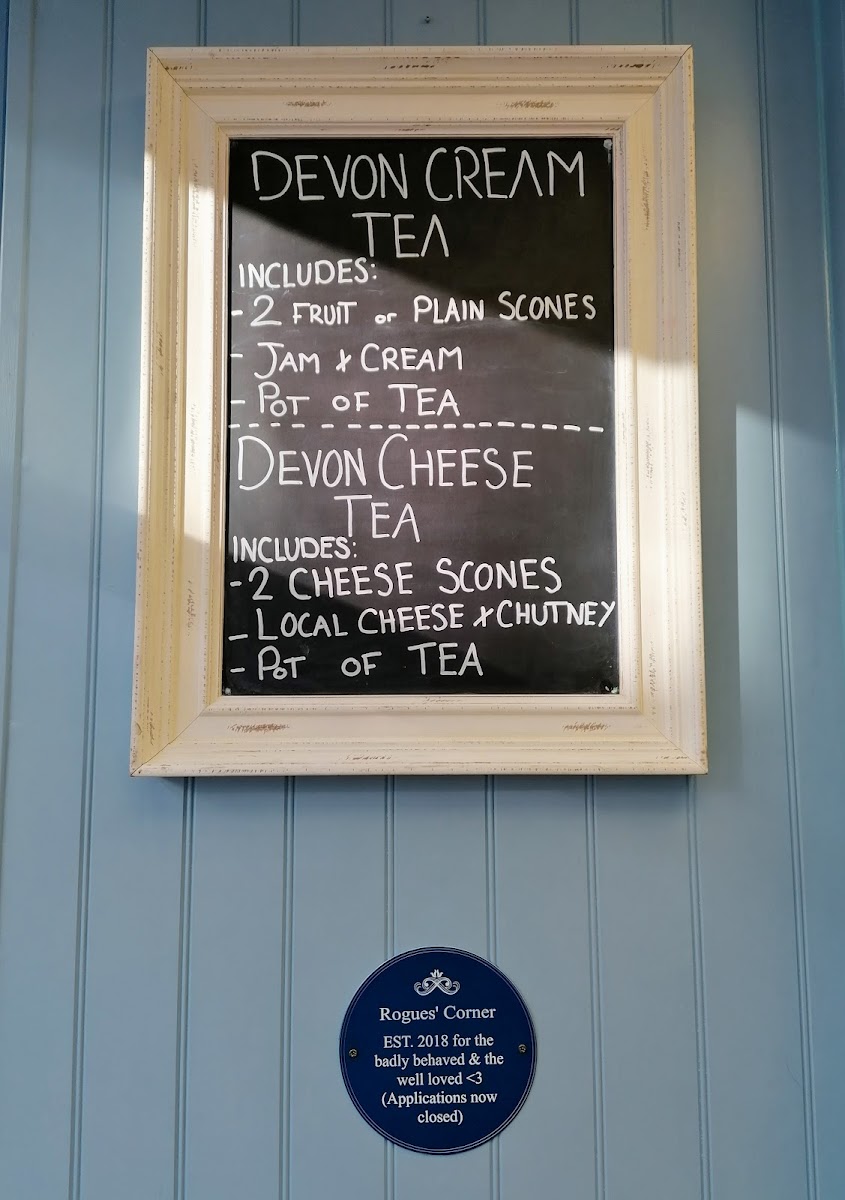 DEVON CREAM
TEA
INCLUDES:
- 2 FRUIT or PLAIN SCONES
- JAM & CREAM
- POT OF TEA
DEVON CHEESE
TEA
INCLUDES:
- 2 CHEESE SCONES
- LOCAL CHEESE & CHUTNEY
- POT OF TEA
Rogues' Corner
EST. 2018 for the
badly behaved & the
well loved <3
(Applications now
closed)